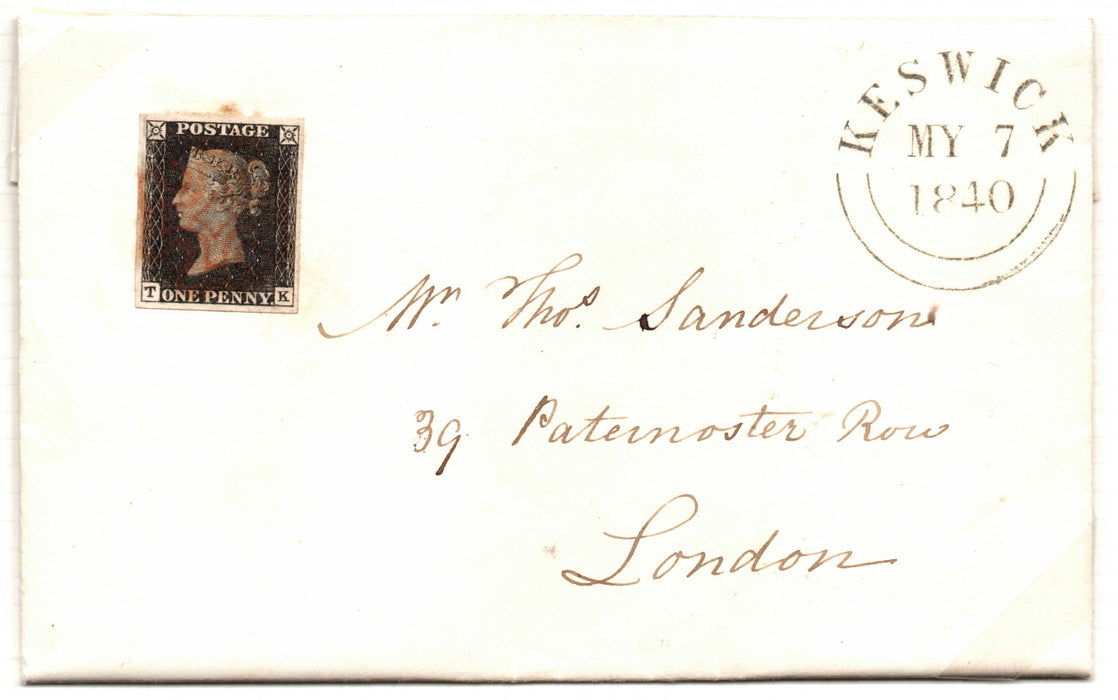 POSTAGE
T ONE PENNY K
KESWICK
MY 7
1840
Mr. Thos. Sanderson
39 Paternoster Row
London